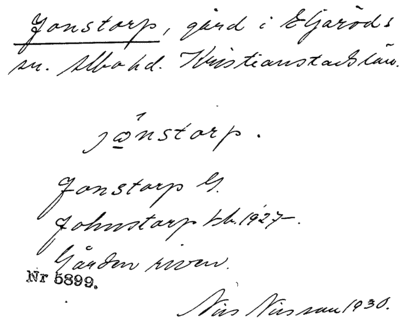 Jonstorp, gård i Eljaröds
sn. Albo hd. Kristianstads län.
jônstorp.
Jonstorp G.
Johnstorp Jb. 1927.
Gården riven.
Nr 5899.
Nils Nilsson 1930.